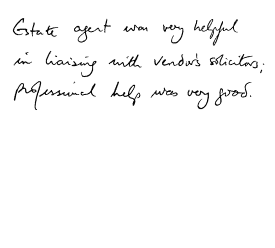 Estate agent was very helpful
in liaising with vendor's solicitors;
professional help was very good.